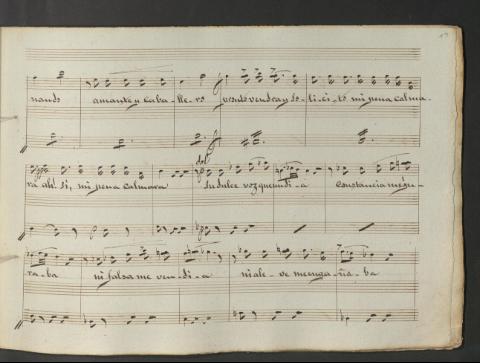 nando amante y caba-lle-ro presto vendra y so-li-ci-to mi pena calma-
ra ah! si, mi pena calmara su dulce voz que un di-a constancia me ju-
ra-ba ni falsa me ven-di-a ni ale-ve me enga-ña-ba